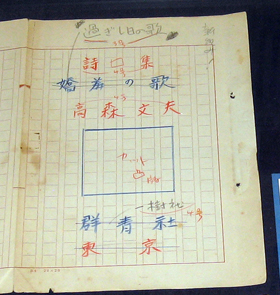 過ぎし日の歌
詩集
嬌羞の歌
高森文夫
カット
一樹社
群青社
東京